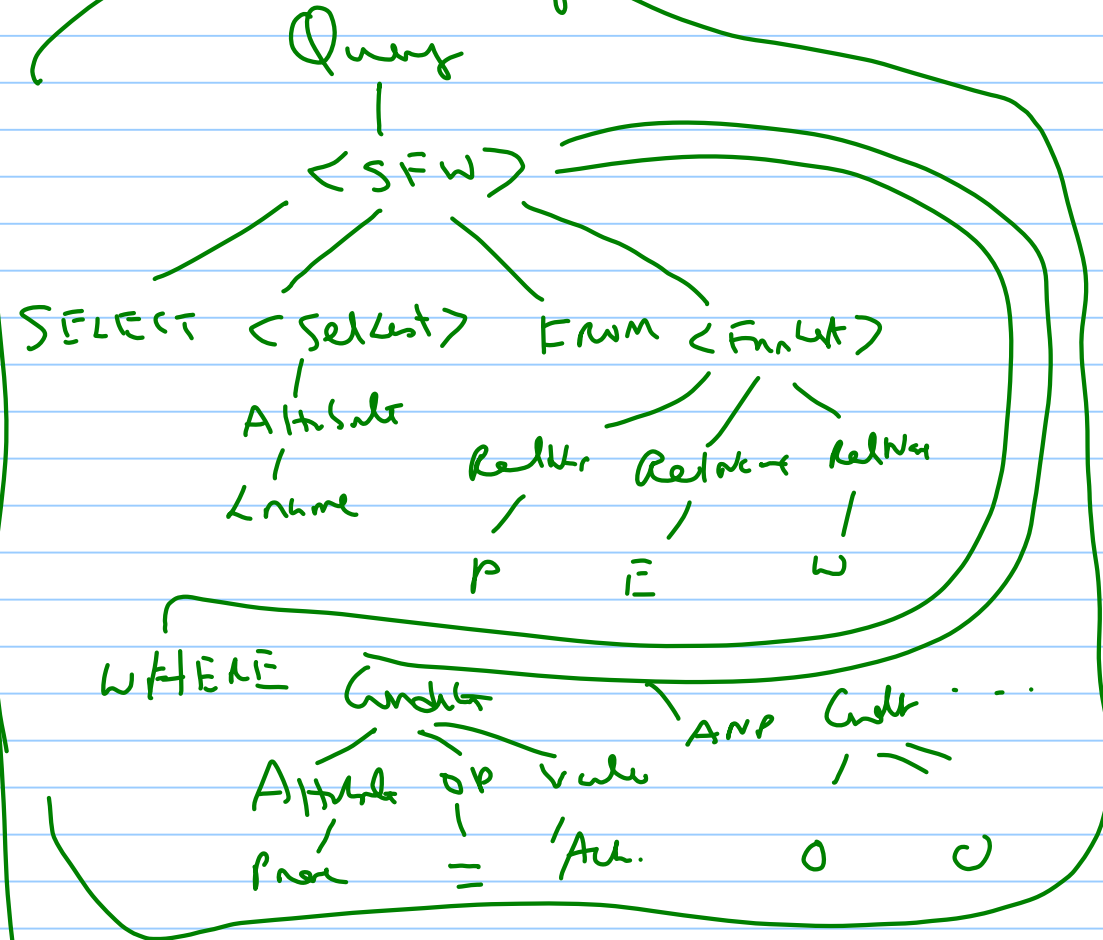 Query
<SFW>
SELECT <SelList> FROM <FromList>
Attribute
Lname
RelName RelName RelName
P E W
WHERE Condition AND Condt ....
Attribute OP Value
Pname = 'Aqu.